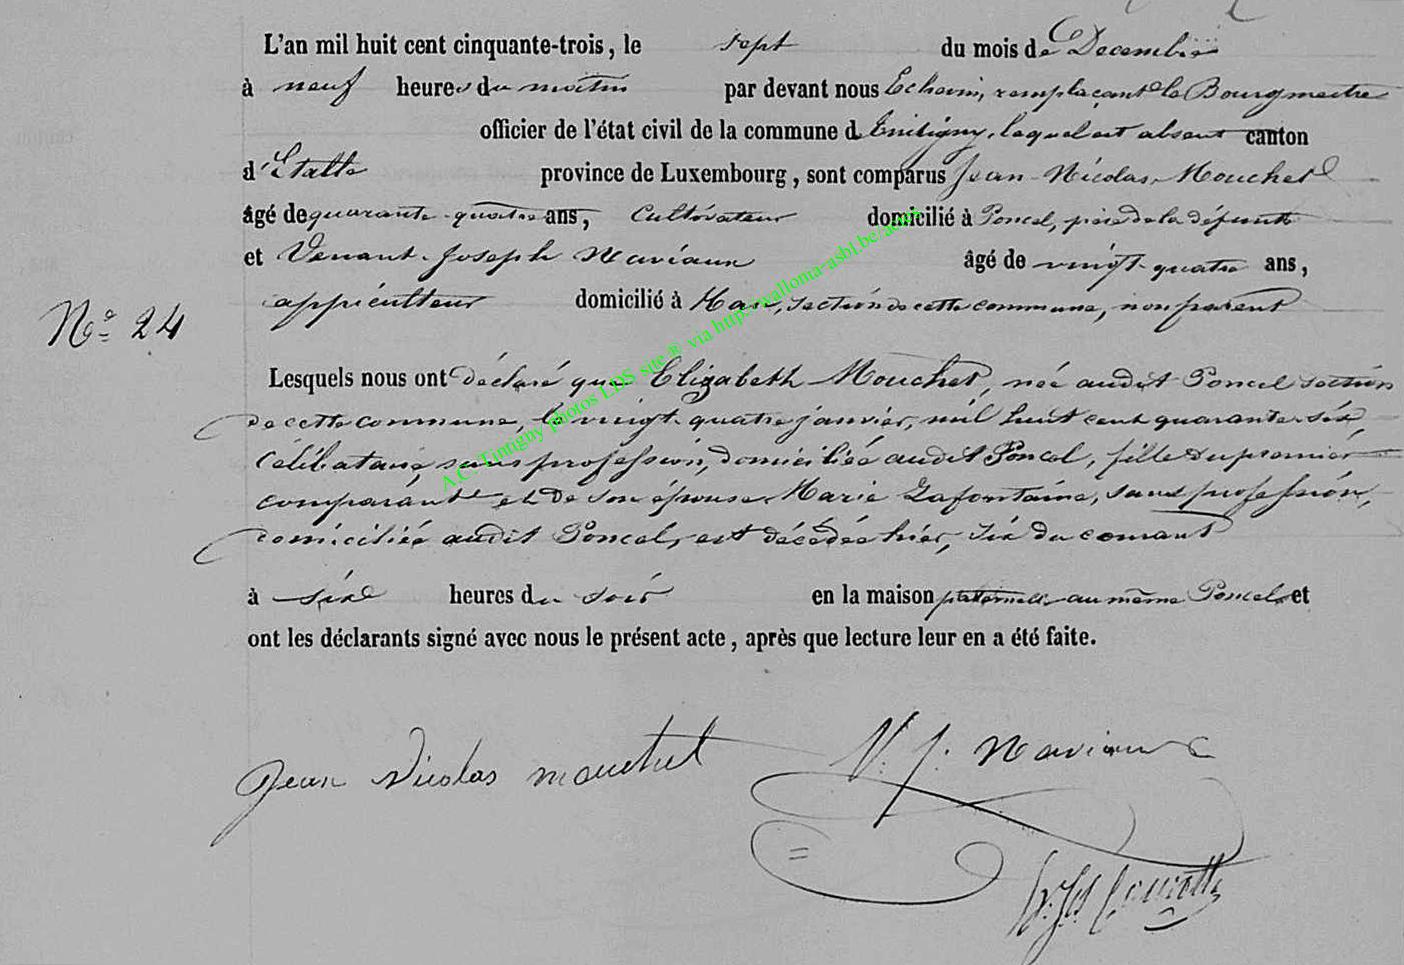 L'an mil huit cent cinquante-trois, le sept du mois de Decembre
à neuf heures du matin par devant nous Echevin, remplaçant le Bourgmestre
officier de l'état civil de la commune de Tintigny, lequel est absent canton
d'Etalle province de Luxembourg, sont comparus Jean-Nicolas Mouchet
âgé de quarante-quatre ans, Cultivateur domicilié à Poncel, père de la défunte
et Venant-Joseph Naviaux âgé de vingt-quatre ans,
appiculteur domicilié à Han, section de cette commune, non parent
No 24
Lesquels nous ont déclaré que Elizabeth Mouchet, née audit Poncel section
de cette commune, le vingt-quatre janvier, mil huit cent quarante six,
Célibataire sans profession, domiciliée audit Poncel, fille du premier
comparant et de son épouse Marie Lafontaine, sans profession,
domiciliée audit Poncel, est décédée hier, six du courant
à six heures du soir en la maison paternelle au même Poncel et
ont les déclarants signé avec nous le présent acte, après que lecture leur en a été faite.
Jean Nicolas mouchet V. J. Naviaux
A.C. Tintigny photos LDS site ® via http://walloma-asbl.be/actes